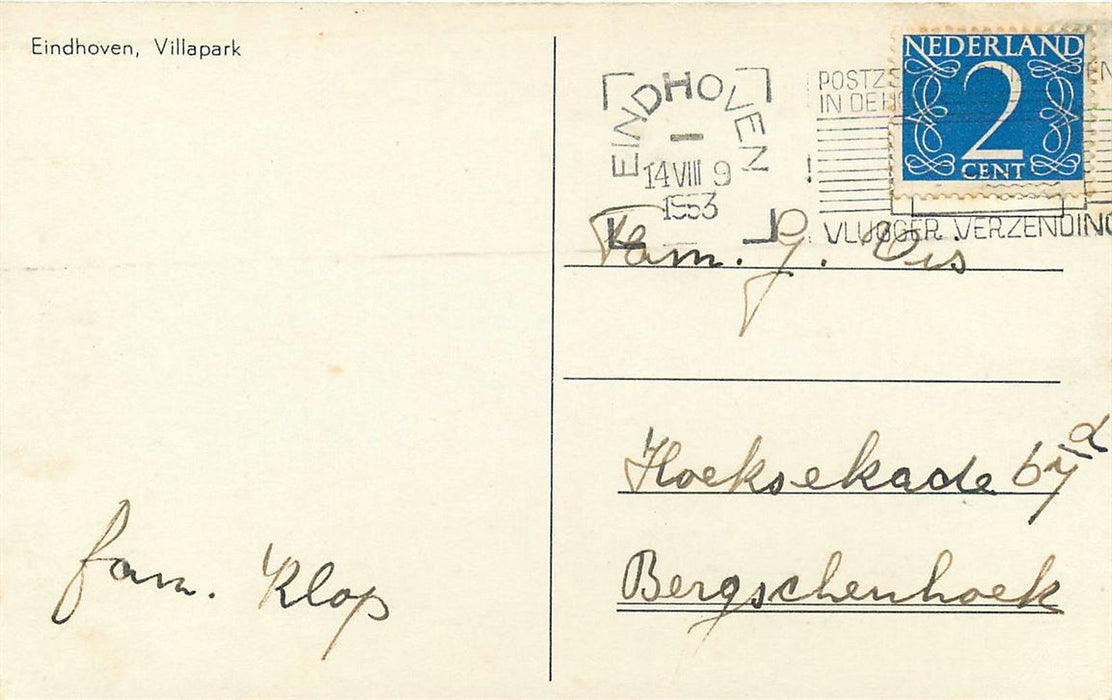 Eindhoven, Villapark
EINDHOVEN
14 VIII 9
1953
IN DE
VLUGGER VERZENDING
NEDERLAND
2
CENT
Fam. J. Vis
Hoeksekade 67 d
Bergschenhoek
fam. Klop